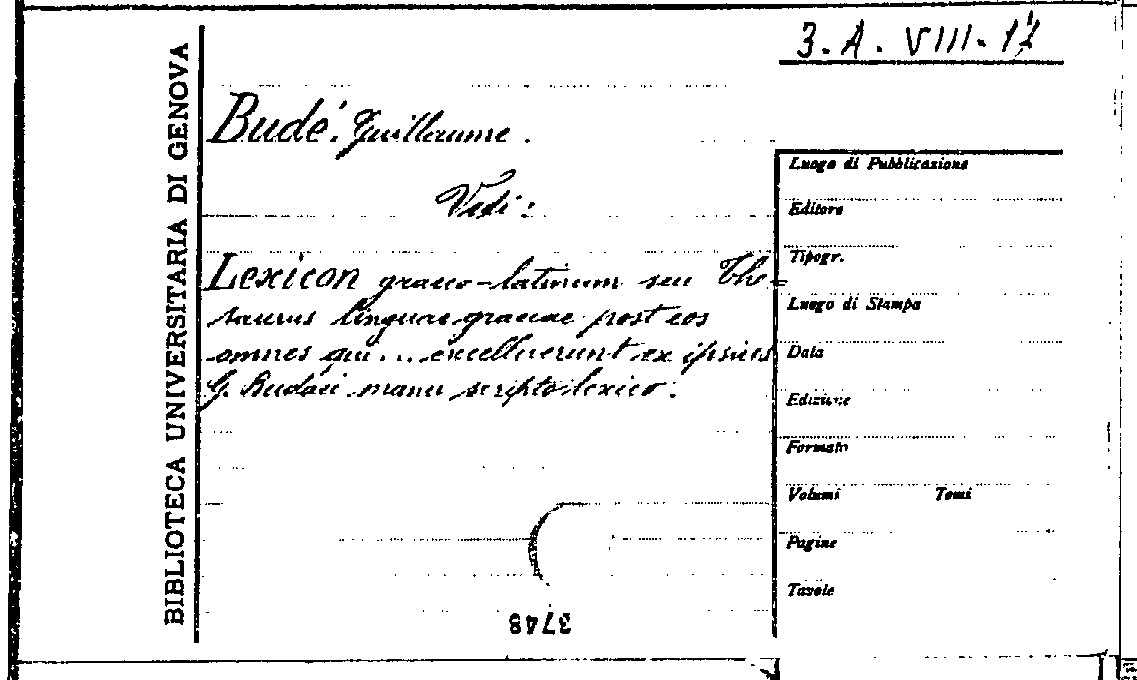 3. A. VIII. 17
BIBLIOTECA UNIVERSITARIA DI GENOVA
Budé. Guillaume.
Vedi:
Lexicon graeco-latinum seu The=
saurus linguae graecae post eos
omnes qui... excelluerunt ex ipsius
G. Budaei manu scripto lexico.
Luogo di Pubblicazione
Editore
Tipogr.
Luogo di Stampa
Data
Edizione
Formato
Volumi Tomi
Pagine
Tavole
3748